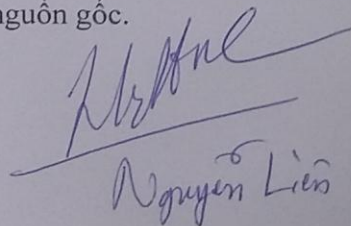 nguồn gốc.
Nguyễn Liên